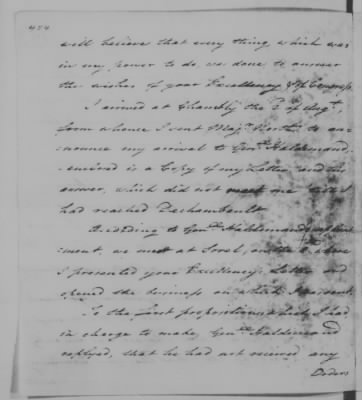 454
will believe that every thing which was
in my power to do, was done to answer
the wishes of your Excellency & of Congress.
I arrived at Chambly the 2d of Augt.
from whence I sent Majr. North to an=
nounce my arrival to Genl. Haldemand,
inclosed is a Copy of my Letter and his
answer, which did not meet me till I
had reached Dechambault
According to Genl. Haldemand's
ment, we met at Sorel, on the
I presented your Excellency's Letter and
opened the business on which I was sent.
To the first proposition which I had
in charge to make, Genl. Haldemand
replyed, that he had not received any
Orders